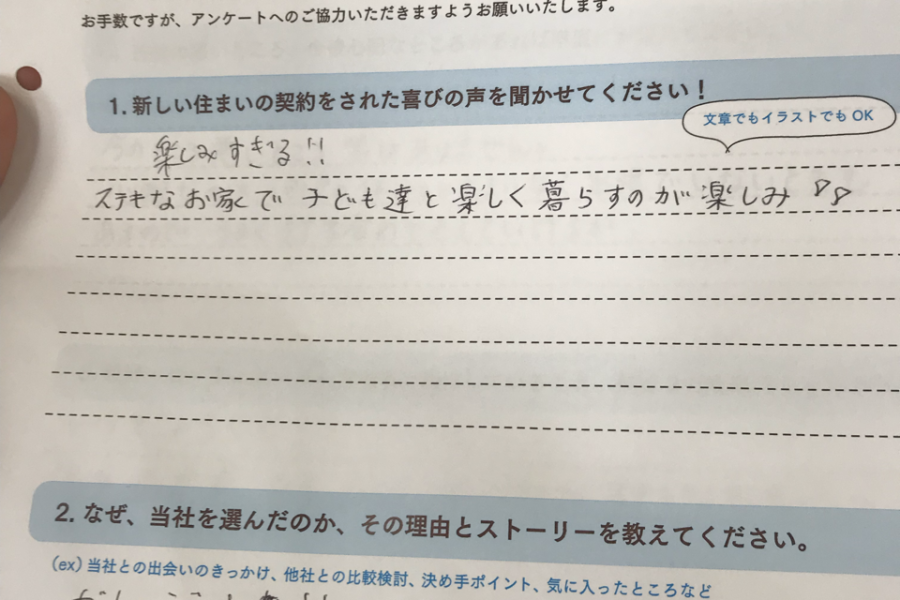 お手数ですが、アンケートへのご協力いただきますようお願いいたします。
1. 新しい住まいの契約をされた喜びの声を聞かせてください！
文章でもイラストでも OK
楽しみすぎる!!
ステキなお家で 子ども達と楽しく暮らすのが楽しみ♪♪
2. なぜ、当社を選んだのか、その理由とストーリーを教えてください。
(ex) 当社との出会いのきっかけ、他社との比較検討、決め手ポイント、気に入ったところなど